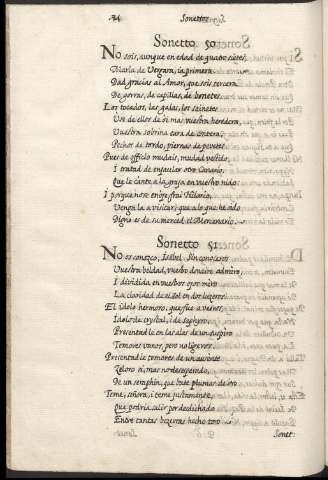 24
Sonettos
Sonetto 50
No sois, aunque en edad de quatro sietes,
Marla de Vergara, ia primera
Dad gracias al Amor, que sois tercera
De gorras, de capillas, de bonetes.
Los tocados, las galas, los
Vuestra sobrina cara de
Pechos de tordo, piernas de peuetes
Pues de officio mudais, mudad vestido,
I tratad de enjaular otro Canario,
Que le cante a la graja en vuestro nido.
I porque no os enoje frai Hilario,
Venga la a visitar; que a lo que he oido
Digno es de su merced el Mercenario.
Sonetto 51
No os conozco, Isabel. Sin conoceros
Vuestra beldad, vuestro donaire admiro,
I dividida en vuestros ojos miro
La claridad de el Sol en dos luzeros.
El idolo hermoso, que fue a veros,
Idolo de crystal, i de saphyro,
Presentad le en las alas de un suspiro
Temores vanos, pero no ligeros.
Presentad le temores de un ausente
Zeloso si, mas no desesperado,
De un seraphin, que bate plumas de oro
Teme, señora, i teme justamente,
Que podria salir por desdichado
Entre tantas bezerras hecho toro
Sonet.